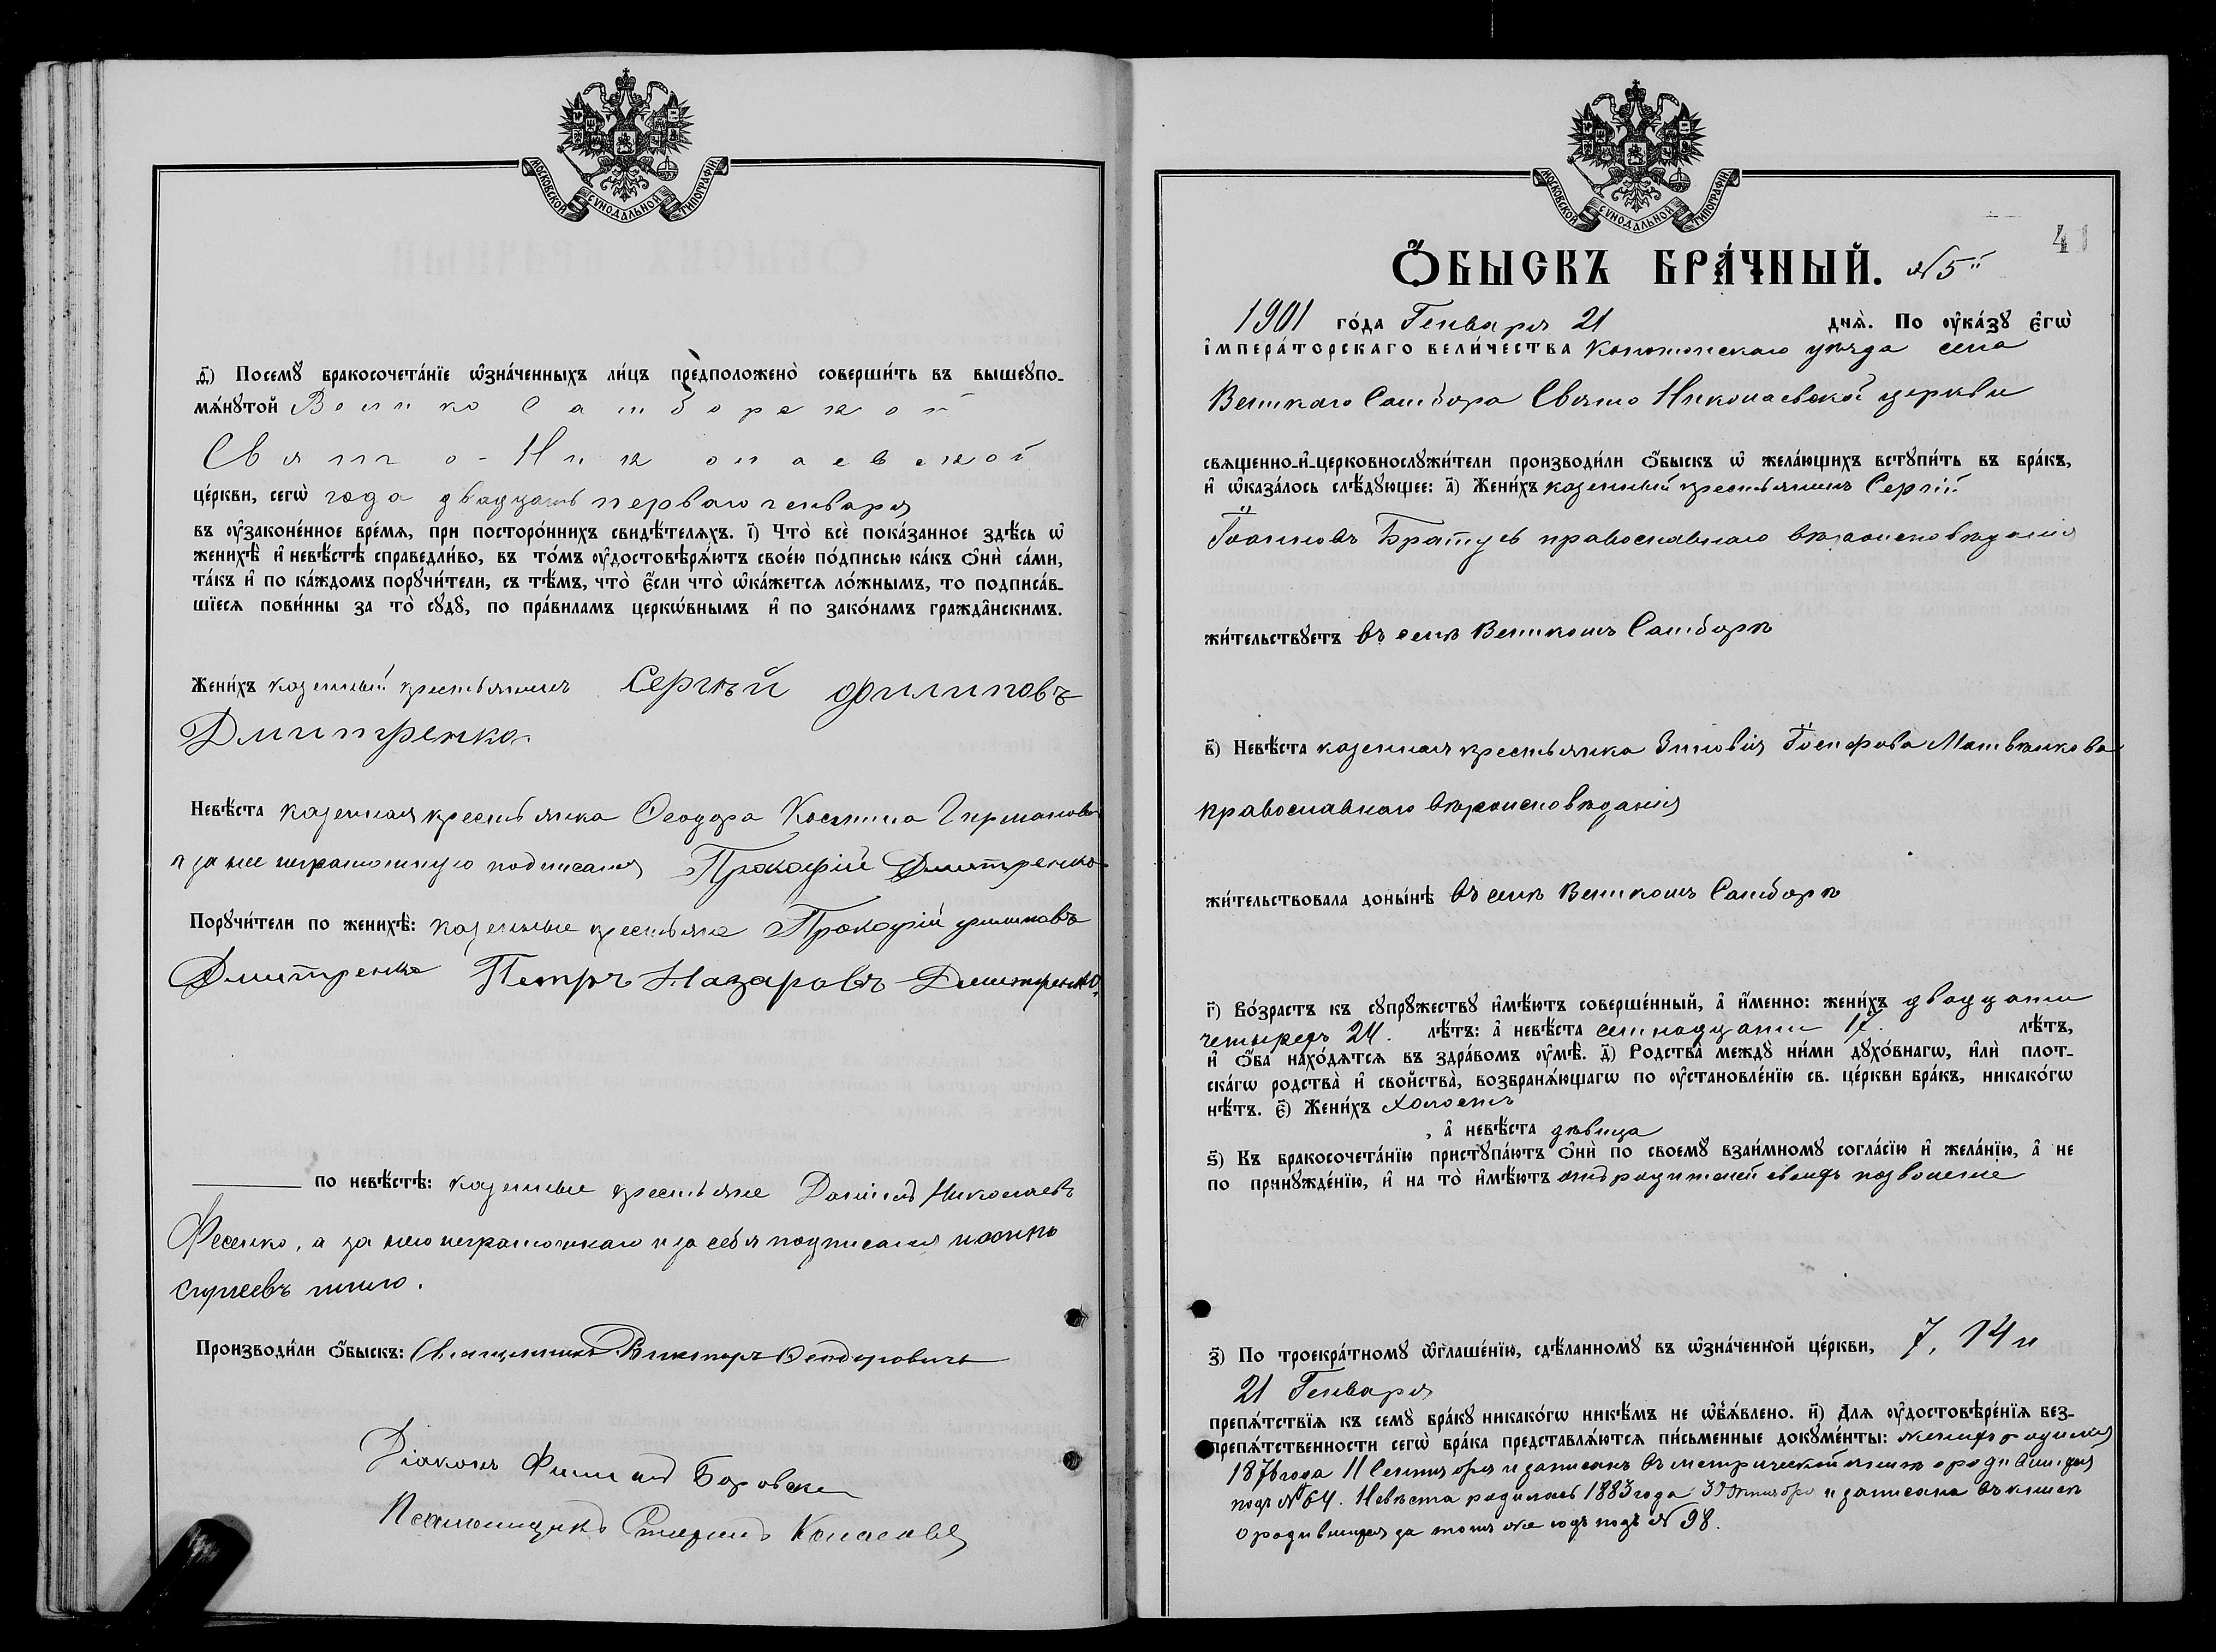 МОСКОВСКОЙ СѴНОДАЛЬНОЙ ТИПОГРАФІИ
ѳ҃) Посемꙋ̀ бракосочета́нїе ѡ҆зна́ченныхъ ли́цъ предположено̀ соверши́ть въ вышеꙋпо-
мѧ́нꙋтой Велико Самборской
Свято-Николаевской
це́ркви, сегѡ̀ года двадцать перваго генваря
въ ᲂу҆законе́нное вре́мѧ, при посторо́ннихъ свидѣ́телѧхъ. і҃) Что̀ всѐ пока́занное здѣ́сь ѡ҆
женихѣ̀ и҆ невѣ́стѣ справедли́во, въ то́мъ ᲂу҆достовѣрѧ́ютъ свое́ю по́дписью ка́къ ѻ҆нѝ са́ми,
та́къ и҆ по ка́ждомъ порꙋчи́тели, съ тѣ́мъ, что̀ є҆́сли что̀ ѡ҆ка́жетсѧ ло́жнымъ, то подписа́в-
шїесѧ пови́нны за то̀ сꙋдꙋ̀, по пра́виламъ церкѡ́внымъ и҆ по зако́намъ гражда́нскимъ.
Жени́хъ казенный крестьянинъ Сергѣй Филиповъ
Дмитренко.
Невѣ́ста казенная крестьянка Ѳеодора Костина Гирманова
а за нее неграмотную подписался Прокофій Дмитренко
Порꙋчи́тели по женихѣ̀: казенные крестьяне Прокофій Филиповъ
Дмитренко Петръ Назаровъ Дмитренко.
по невѣ́стѣ: казенные крестьяне Даніилъ Николаевъ
Фесенко, а за него неграмотнаго и за себя подписался
Производи́ли ѻ҆́быскъ: Священникъ Викторъ Ѳеодоровичъ
Діаконъ Филипъ Боровски
Псаломщикъ
МОСКОВСКОЙ СѴНОДАЛЬНОЙ ТИПОГРАФІИ
41
Ѻ҆́БЫСКЪ БРА́ЧНЫЙ. №5й
1901 го́да Генваря 21 днѧ̀. По ᲂу҆ка́зꙋ є҆гѡ̀
і҆мпера́торскаго вели́чества Конотопскаго уѣзда села
Великаго Самбора Свято Николаевской церкви
свѧщенно-и҆-церковнослꙋжи́тели производи́ли ѻ҆́быскъ ѡ҆ жела́ющихъ встꙋпи́ть въ бра́къ,
и҆ ѡ҆каза́лось слѣ́дꙋющее: а҃) Жени́хъ казенный крестьянинъ Сергій
Іоанновъ Братусь православнаго вѣроисповѣданія
жи́тельствꙋетъ въ селѣ Великомъ Самборѣ
в҃) Невѣ́ста казенная крестьянка Зиновія Іосифова Матвѣенкова
православнаго вѣроисповѣданія
жи́тельствовала доны́нѣ въ селѣ Великомъ Самборѣ
г҃) Во́зрастъ къ сꙋпрꙋ́жествꙋ и҆мѣ́ютъ соверше́нный, а҆ и҆́менно: жени́хъ двадцати
четырехъ 24. лѣ́тъ: а҆ невѣ́ста семнадцати 17. лѣ́тъ,
и҆ ѻ҆́ба нахо́дѧтсѧ въ здра́вомъ ᲂу҆мѣ̀. д҃) Родства̀ междꙋ̀ ни́ми дꙋхо́внагѡ, и҆лѝ плот-
ска́гѡ родства̀ и҆ свойства̀, возбранѧ́ющагѡ по ᲂу҆становле́нїю св. це́ркви бра́къ, никако́гѡ
нѣ́тъ. є҃) Жени́хъ холостъ
, а҆ невѣ́ста дѣвица
ѕ҃) Къ бракосочета́нїю пристꙋпа́ютъ ѻ҆нѝ по своемꙋ̀ взаи́мномꙋ согла́сїю и҆ жела́нїю, а҆ не
по принꙋжде́нїю, и҆ на то̀ и҆мѣ́ютъ отъ родителей своихъ позволеніе
з҃) По троекра́тномꙋ ѡ҆глаше́нїю, сдѣ́ланномꙋ въ ѡ҆зна́ченной це́ркви, 7, 14 и
21 Генваря
препѧ́тствїѧ къ семꙋ̀ бра́кꙋ никако́гѡ никѣ́мъ не ѡ҆б̾ѧ́влено. и҃) Длѧ ᲂу҆достовѣре́нїѧ без-
препѧ́тственности сегѡ̀ бра́ка представлѧ́ютсѧ пи́сьменные докꙋме́нты: женихъ родился
1876 года 11 Сентября и записанъ въ метрической книгѣ о родившихся
подъ №64. Невѣста родилась 1883 года 30 Октября и записана въ книгѣ
о родившихся за тотъ же годъ подъ № 98.